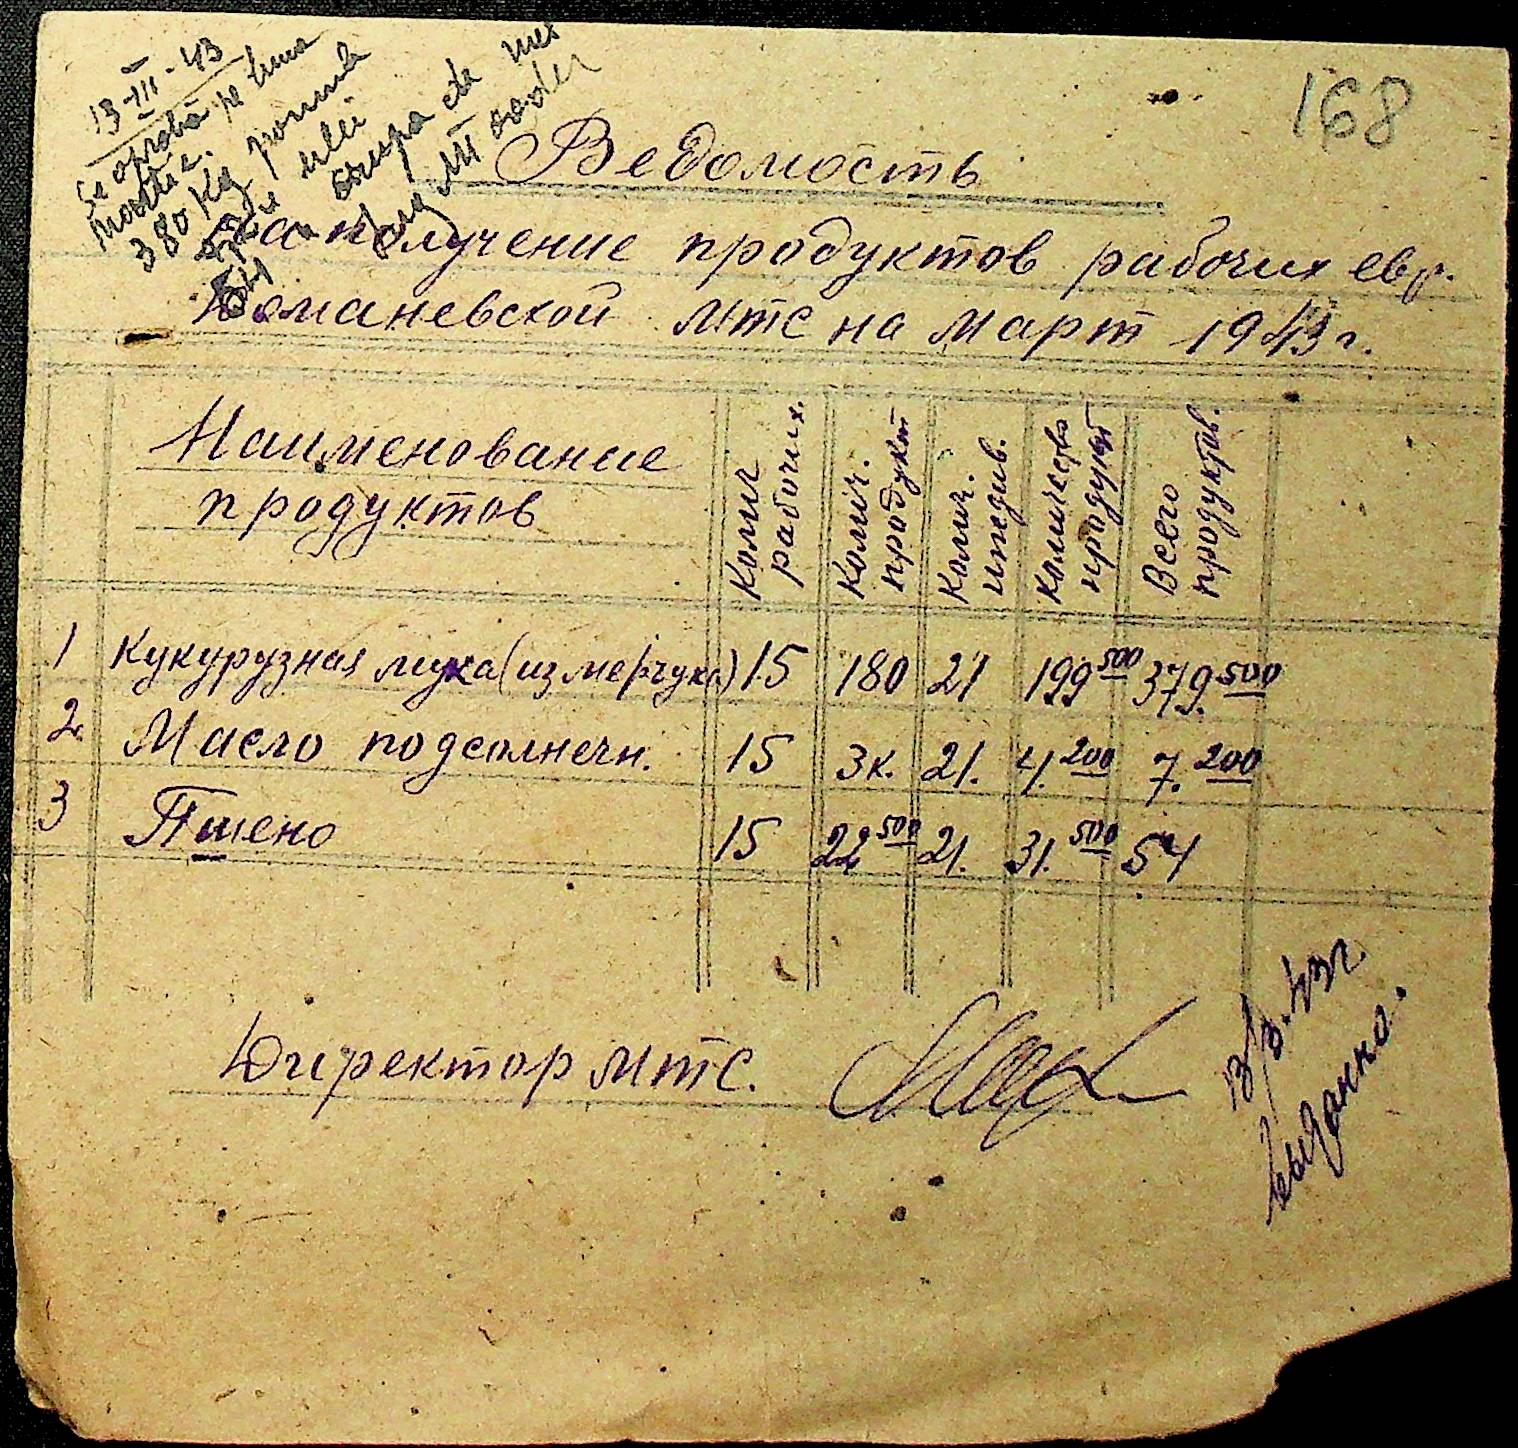 168
13-III-43
Se aprobă pe luna
Martie.
380 Kg porumb
ulei
54 supa de mei
Ведомость
на получение продуктов рабочих евр.
Команевской МТС на Март 1943 г.
Наименование продуктов
Колич рабочих.
Колич. продукт
Колич. иждив.
Количество продукт
Всего продуктов.
1 Кукурузная мука (из мерчука) 15 180 21 199 500 379. 500
2. Масло подсолнечн. 15 3к. 21. 4. 200 7. 200
3 Пшено 15 22 500 21. 31. 500 54
Директор МТС.
13/3.43г.
Выданно.